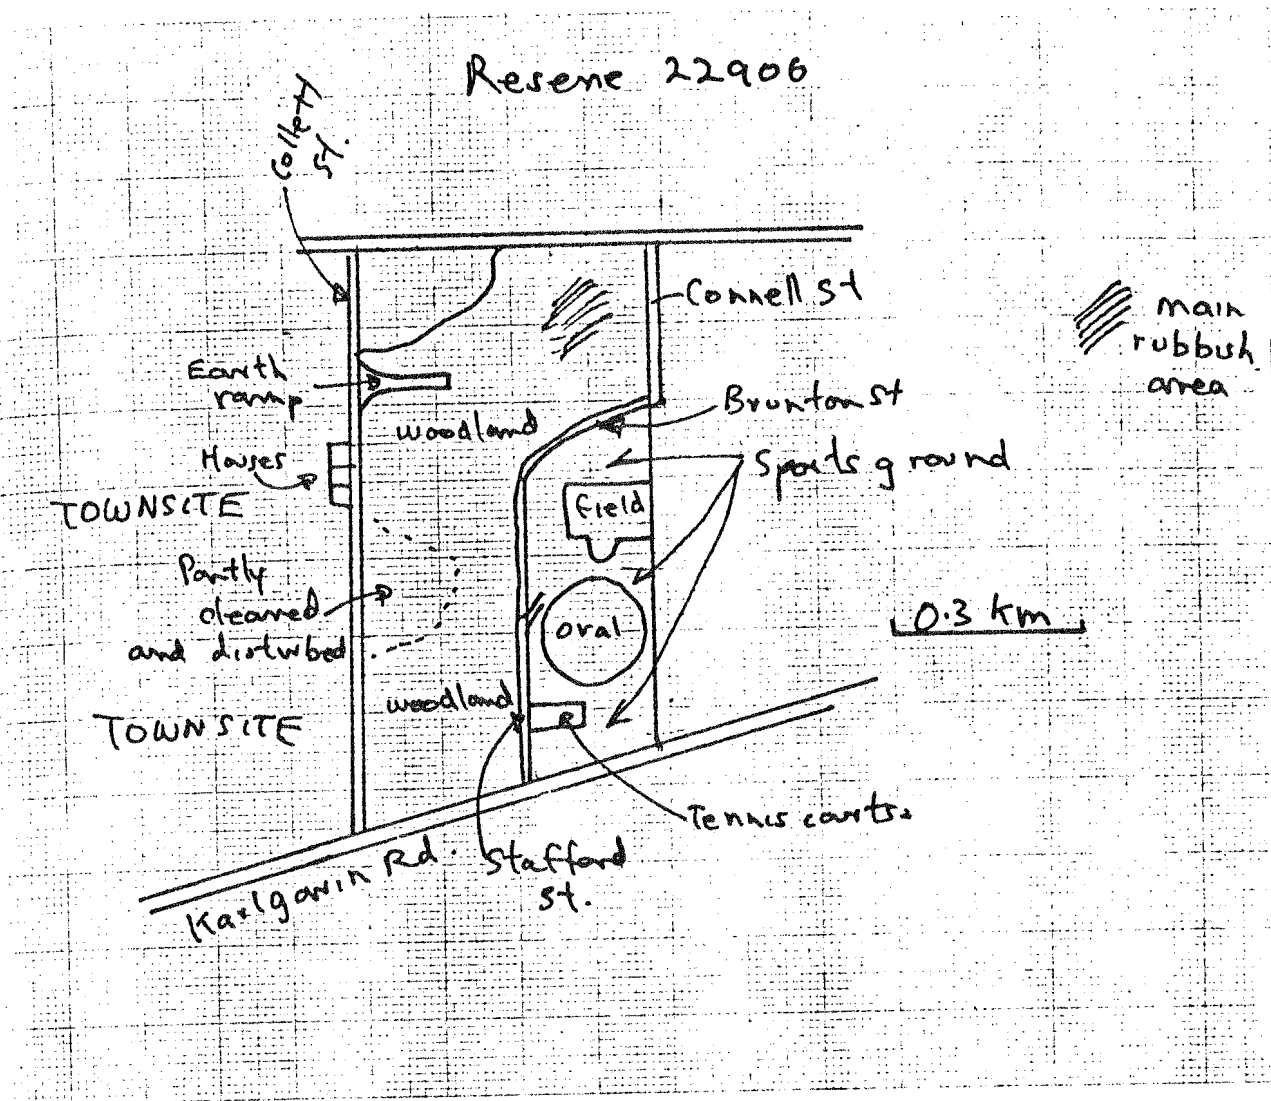 Reserve 22906
Collett
St.
Connell St
main
rubbish
area
Earth
ramp
Brunton St
woodland
Houses
Sports ground
TOWNSITE
field
Partly
cleared
and disturbed
0.3 km
oval
woodland
TOWNSITE
Tennis courts.
Karlgarin Rd.
Stafford
St.